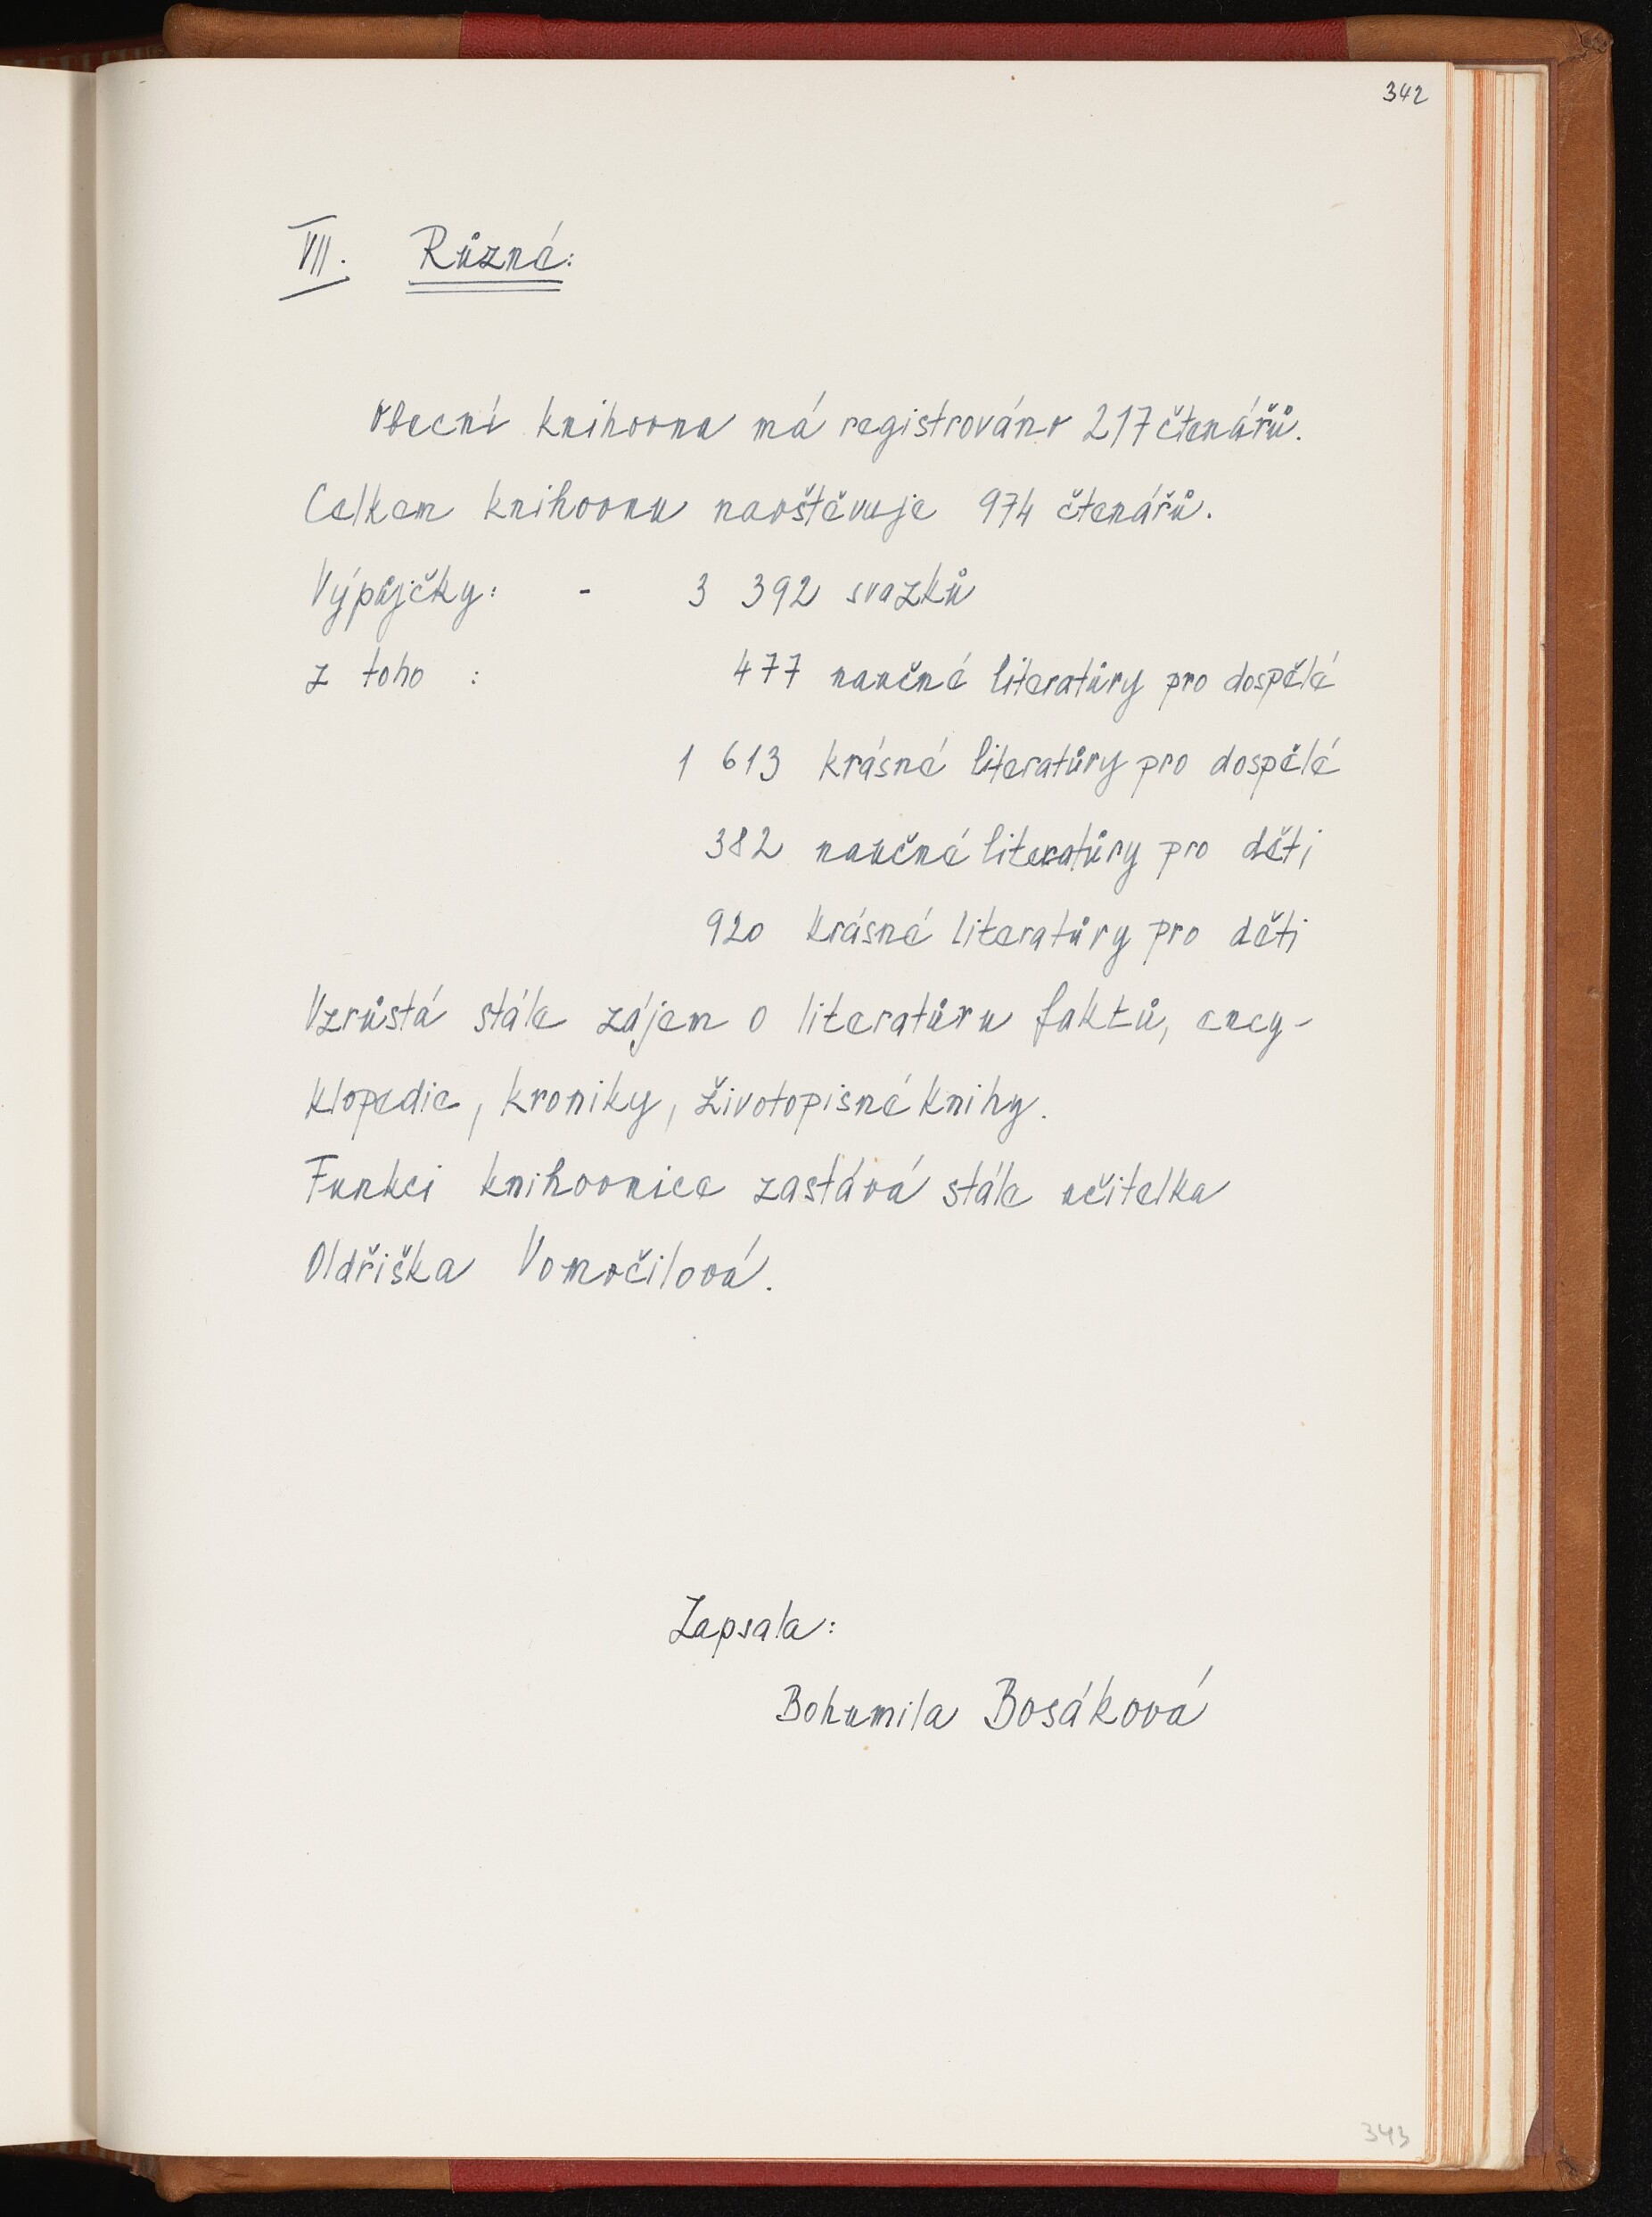 342
VII. Různé:
Obecní knihovna má registrováno 217 čtenářů.
Celkem knihovnu navštěvuje 974 čtenářů.
Výpůjčky: - 3 392 svazků
z toho : 477 naučné literatůry pro dospělé
1 613 krásné literatůry pro dospělé
382 naučné literatůry pro děti
920 krásné literatůry pro děti
Vzrůstá stále zájem o literatůru faktů, ency-
klopedie, kroniky, životopisné knihy.
Funkci knihovnice zastává stále učitelka
Oldřiška Vomočilová.
Zapsala:
Bohumila Bosáková
343